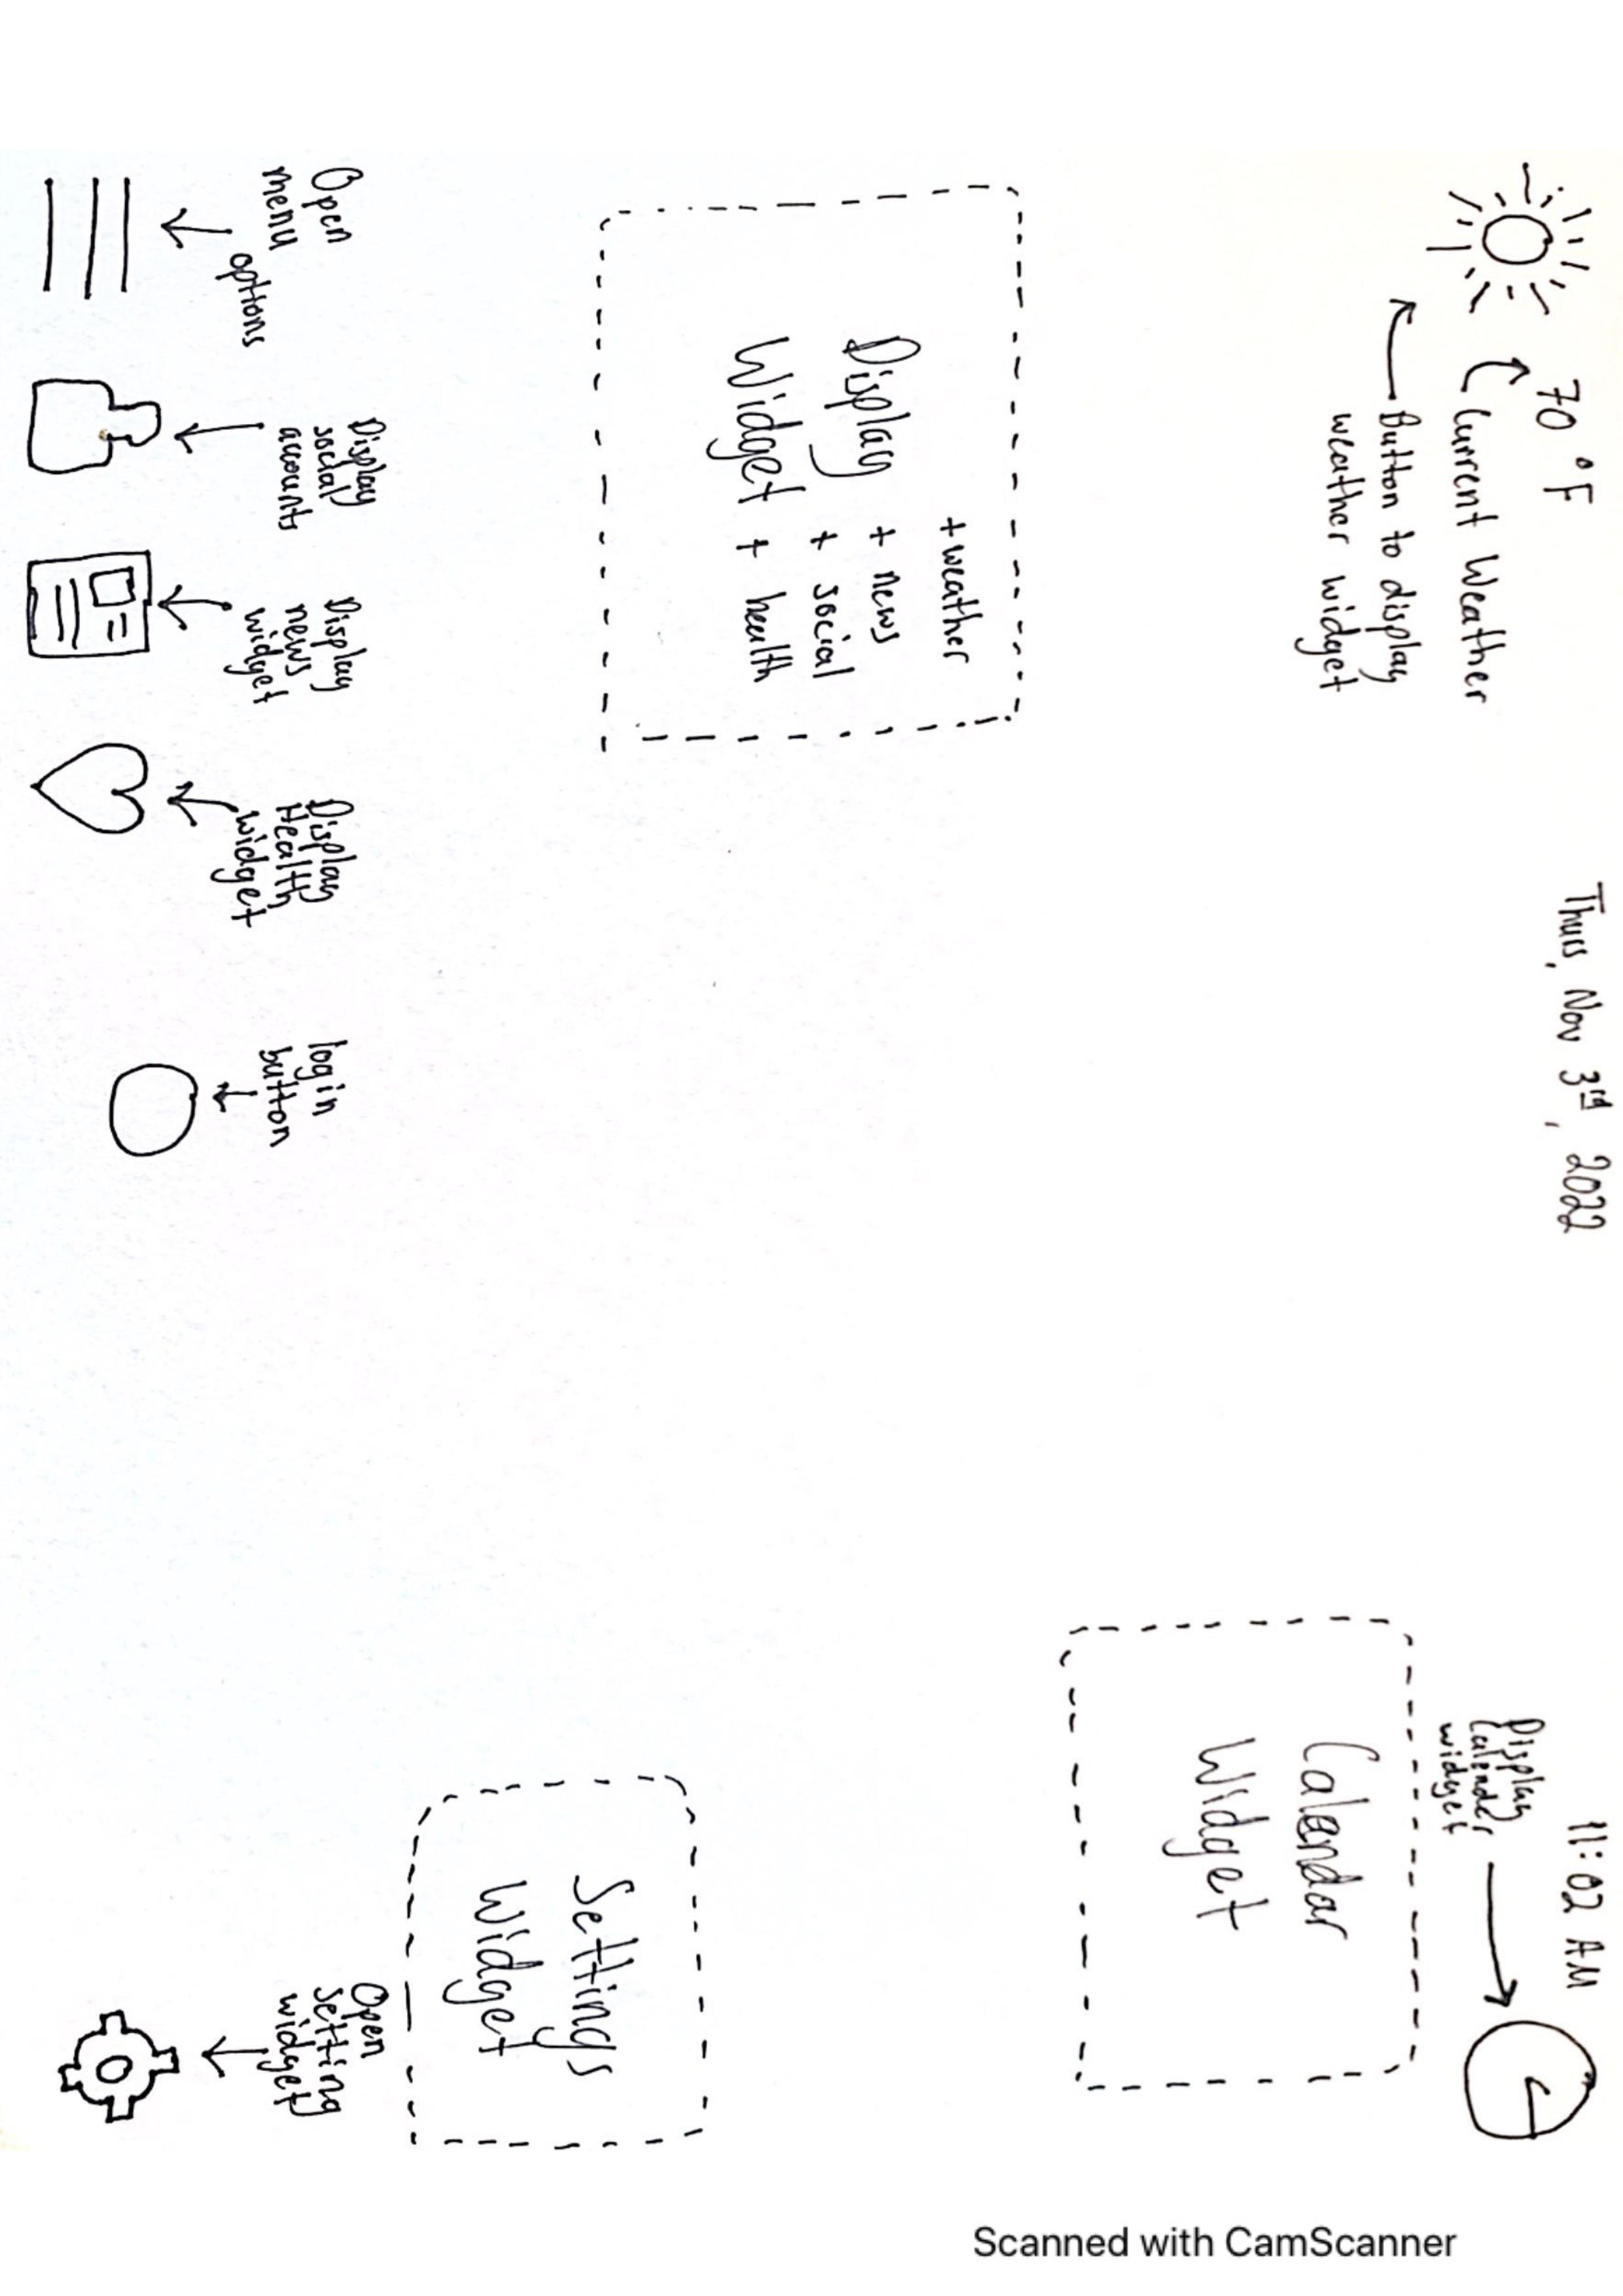 70 °F
Current Weather
Button to display
weather widget
Thurs, Nov 3rd, 2022
11:02 AM
Display
Calender
widget
Calendar
Widget
Display
Widget
+ weather
+ news
+ social
+ health
Settings
Widget
Open
menu
options
Display
social
accounts
Display
news
widget
Display
Health
widget
login
button
Open
setting
widget
Scanned with CamScanner